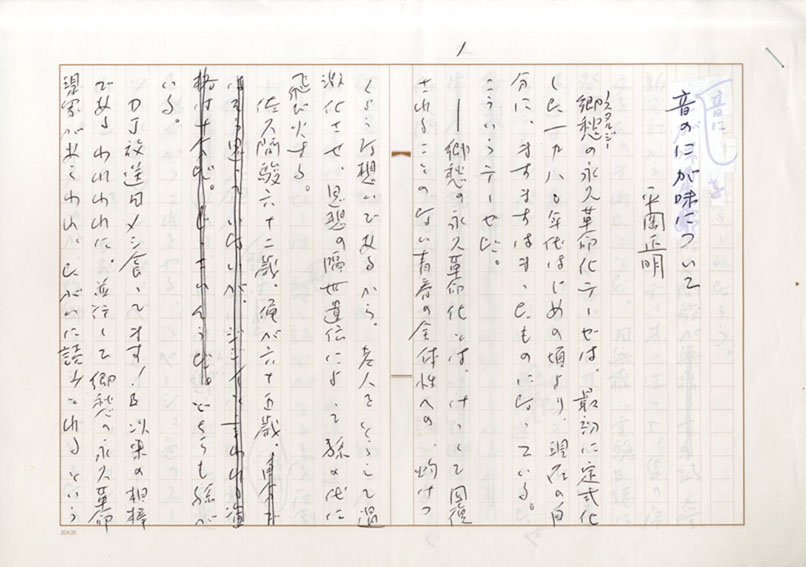 1
音のにが味について
平岡正明
ノスタルジー
郷愁の永久革命化テーゼは、最初に定式化
した一九八〇年代はじめの頃より、現在の自
分に、ますますはまったものになっている。
こういうテーゼだ。
――郷愁の永久革命化とは、けっして回復
されることのない青春の全体性への、灼けつ
くような想いであるから、老人をとらえて過
激化させ、思想の隔世遺伝によって孫の代に
飛び火する。
佐久間駿六十二歳、俺が六十五歳、自分で
はそう思っていないが、ジジイと言われる資
格は十分だ。どちらも孫が
いる。
DJ放送 食ってます! 以来の相棒
であるわれわれに、並行して郷愁の永久革命
現象があらわれ、たがいに されるという
20×20